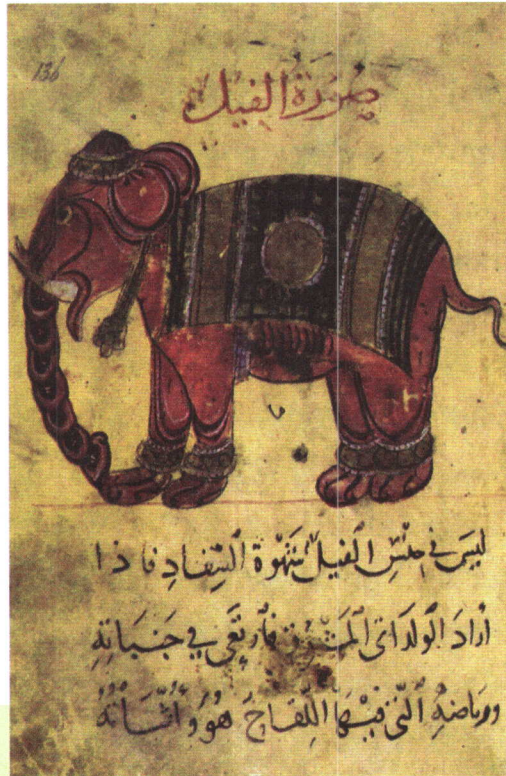 136
صُوْرَةُ الفِيْل
لَيسَ فِي جِنْسِ الْفِيلِ شَهْوَةُ السِّفَادِ فَاذا
أرَادَ الْوَلَدَ اتَى الْمَشْرِقَ فَارتَعَى فِي جَنبَاتِهِ
ورياضهِ الَّتي فِيهَا اللِّفاحَ هُوَ وَأُنْثَاتُهُ